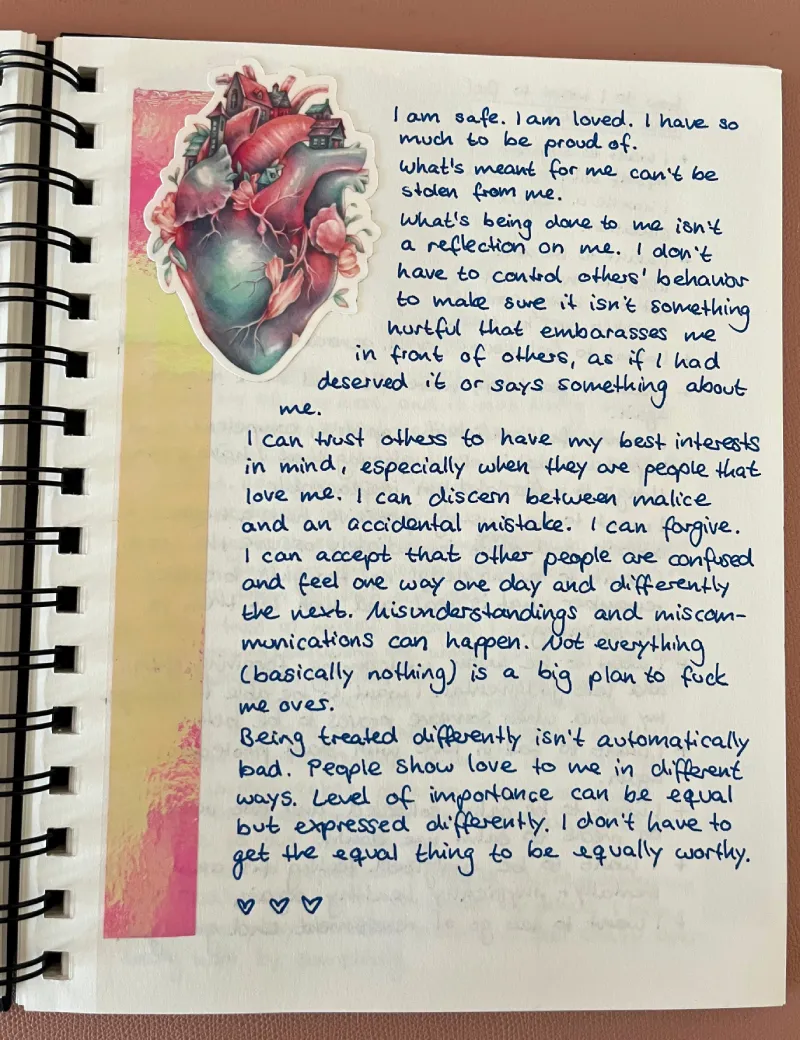 I am safe. I am loved. I have so
much to be proud of.
What's meant for me can't be
stolen from me.
What's being done to me isn't
a reflection on me. I don't
have to control others' behavior
to make sure it isn't something
hurtful that embarasses me
in front of others, as if I had
deserved it or says something about
me.
I can trust others to have my best interests
in mind, especially when they are people that
love me. I can discern between malice
and an accidental mistake. I can forgive.
I can accept that other people are confused
and feel one way one day and differently
the next. Misunderstandings and miscom-
munications can happen. Not everything
(basically nothing) is a big plan to fuck
me over.
Being treated differently isn't automatically
bad. People show love to me in different
ways. Level of importance can be equal
but expressed differently. I don't have to
get the equal thing to be equally worthy.
♡ ♡ ♡